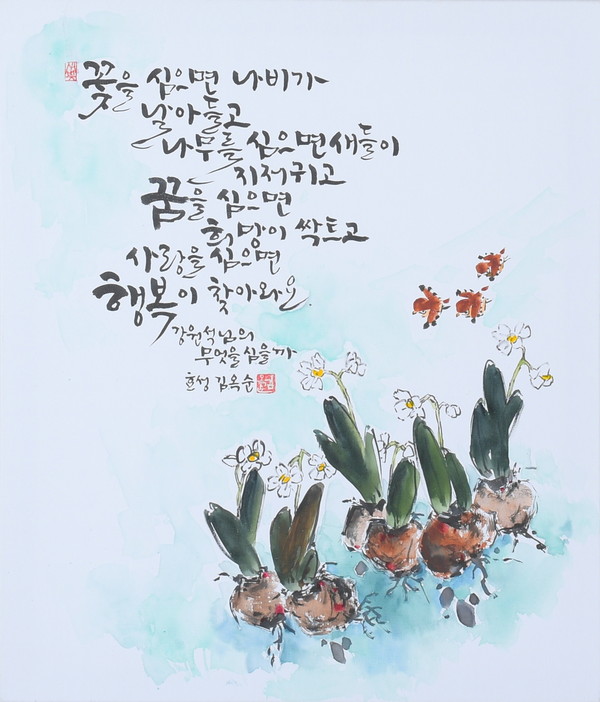 꽃을 심으면 나비가
날아들고
나무를 심으면 새들이
지저귀고
꿈을 심으면
희망이 싹트고
사랑을 심으면
행복이 찾아와요
강원석님의
무엇을 심을까
효성 김옥순